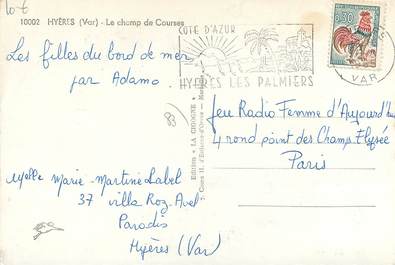 10-6
10002 HYÈRES (Var) - Le champ de Courses
Les filles du bord de mer
par Adamo
CÔTE D'AZUR
HYÈRES LES PALMIERS
0,30
VAR
83
Edition « LA CIGOGNE »
Jeu Radio Femme d'Aujourd'hui
4 rond point des Champs Elysée
Paris
Melle Marie-Martine Label
37 villa Roz-Avel
Paradis
Hyères (Var)